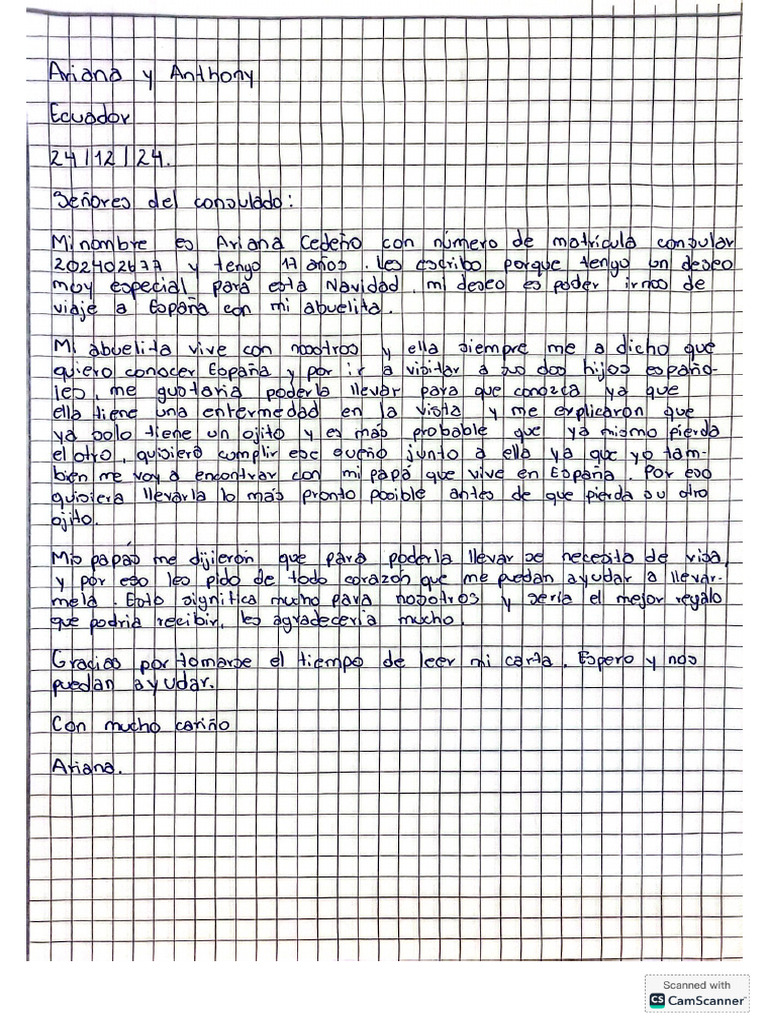 Ariana y Anthony
Ecuador
24/12/24.
Señores del consulado:
Mi nombre es Ariana Cedeño con número de matrícula consular
202402677 y tengo 17 años. Les escribo porque tengo un deseo
muy especial para esta Navidad, mi deseo es poder irnos de
viaje a España con mi abuelita.
Mi abuelita vive con nosotros y ella siempre me a dicho que
quiero conocer España y por ir a visitar a sus dos hijos españo-
les, me gustaria poderla llevar para que conozca ya que
ella tiene una enfermedad en la vista y me explicarón que
ya solo tiene un ojito y es más probable que ya mismo pierda
el otro, quisiera cumplir ese sueño junto a ella ya que yo tam-
bien me voy a encontrar con mi papá que vive en España. Por eso
quisiera llevarla lo más pronto posible antes de que pierda su otro
ojito.
Mis papás me dijierón que para poderla llevar se necesita de visa,
y por eso les pido de todo corazón que me puedan ayudar a llevar-
mela. Esto significa mucho para nosotros y sería el mejor regalo
que podria recibir, les agradecería mucho.
Gracias por tomarse el tiempo de leer mi carta. Espero y nos
puedan ayudar.
Con mucho cariño
Ariana.
Scanned with
CS CamScanner